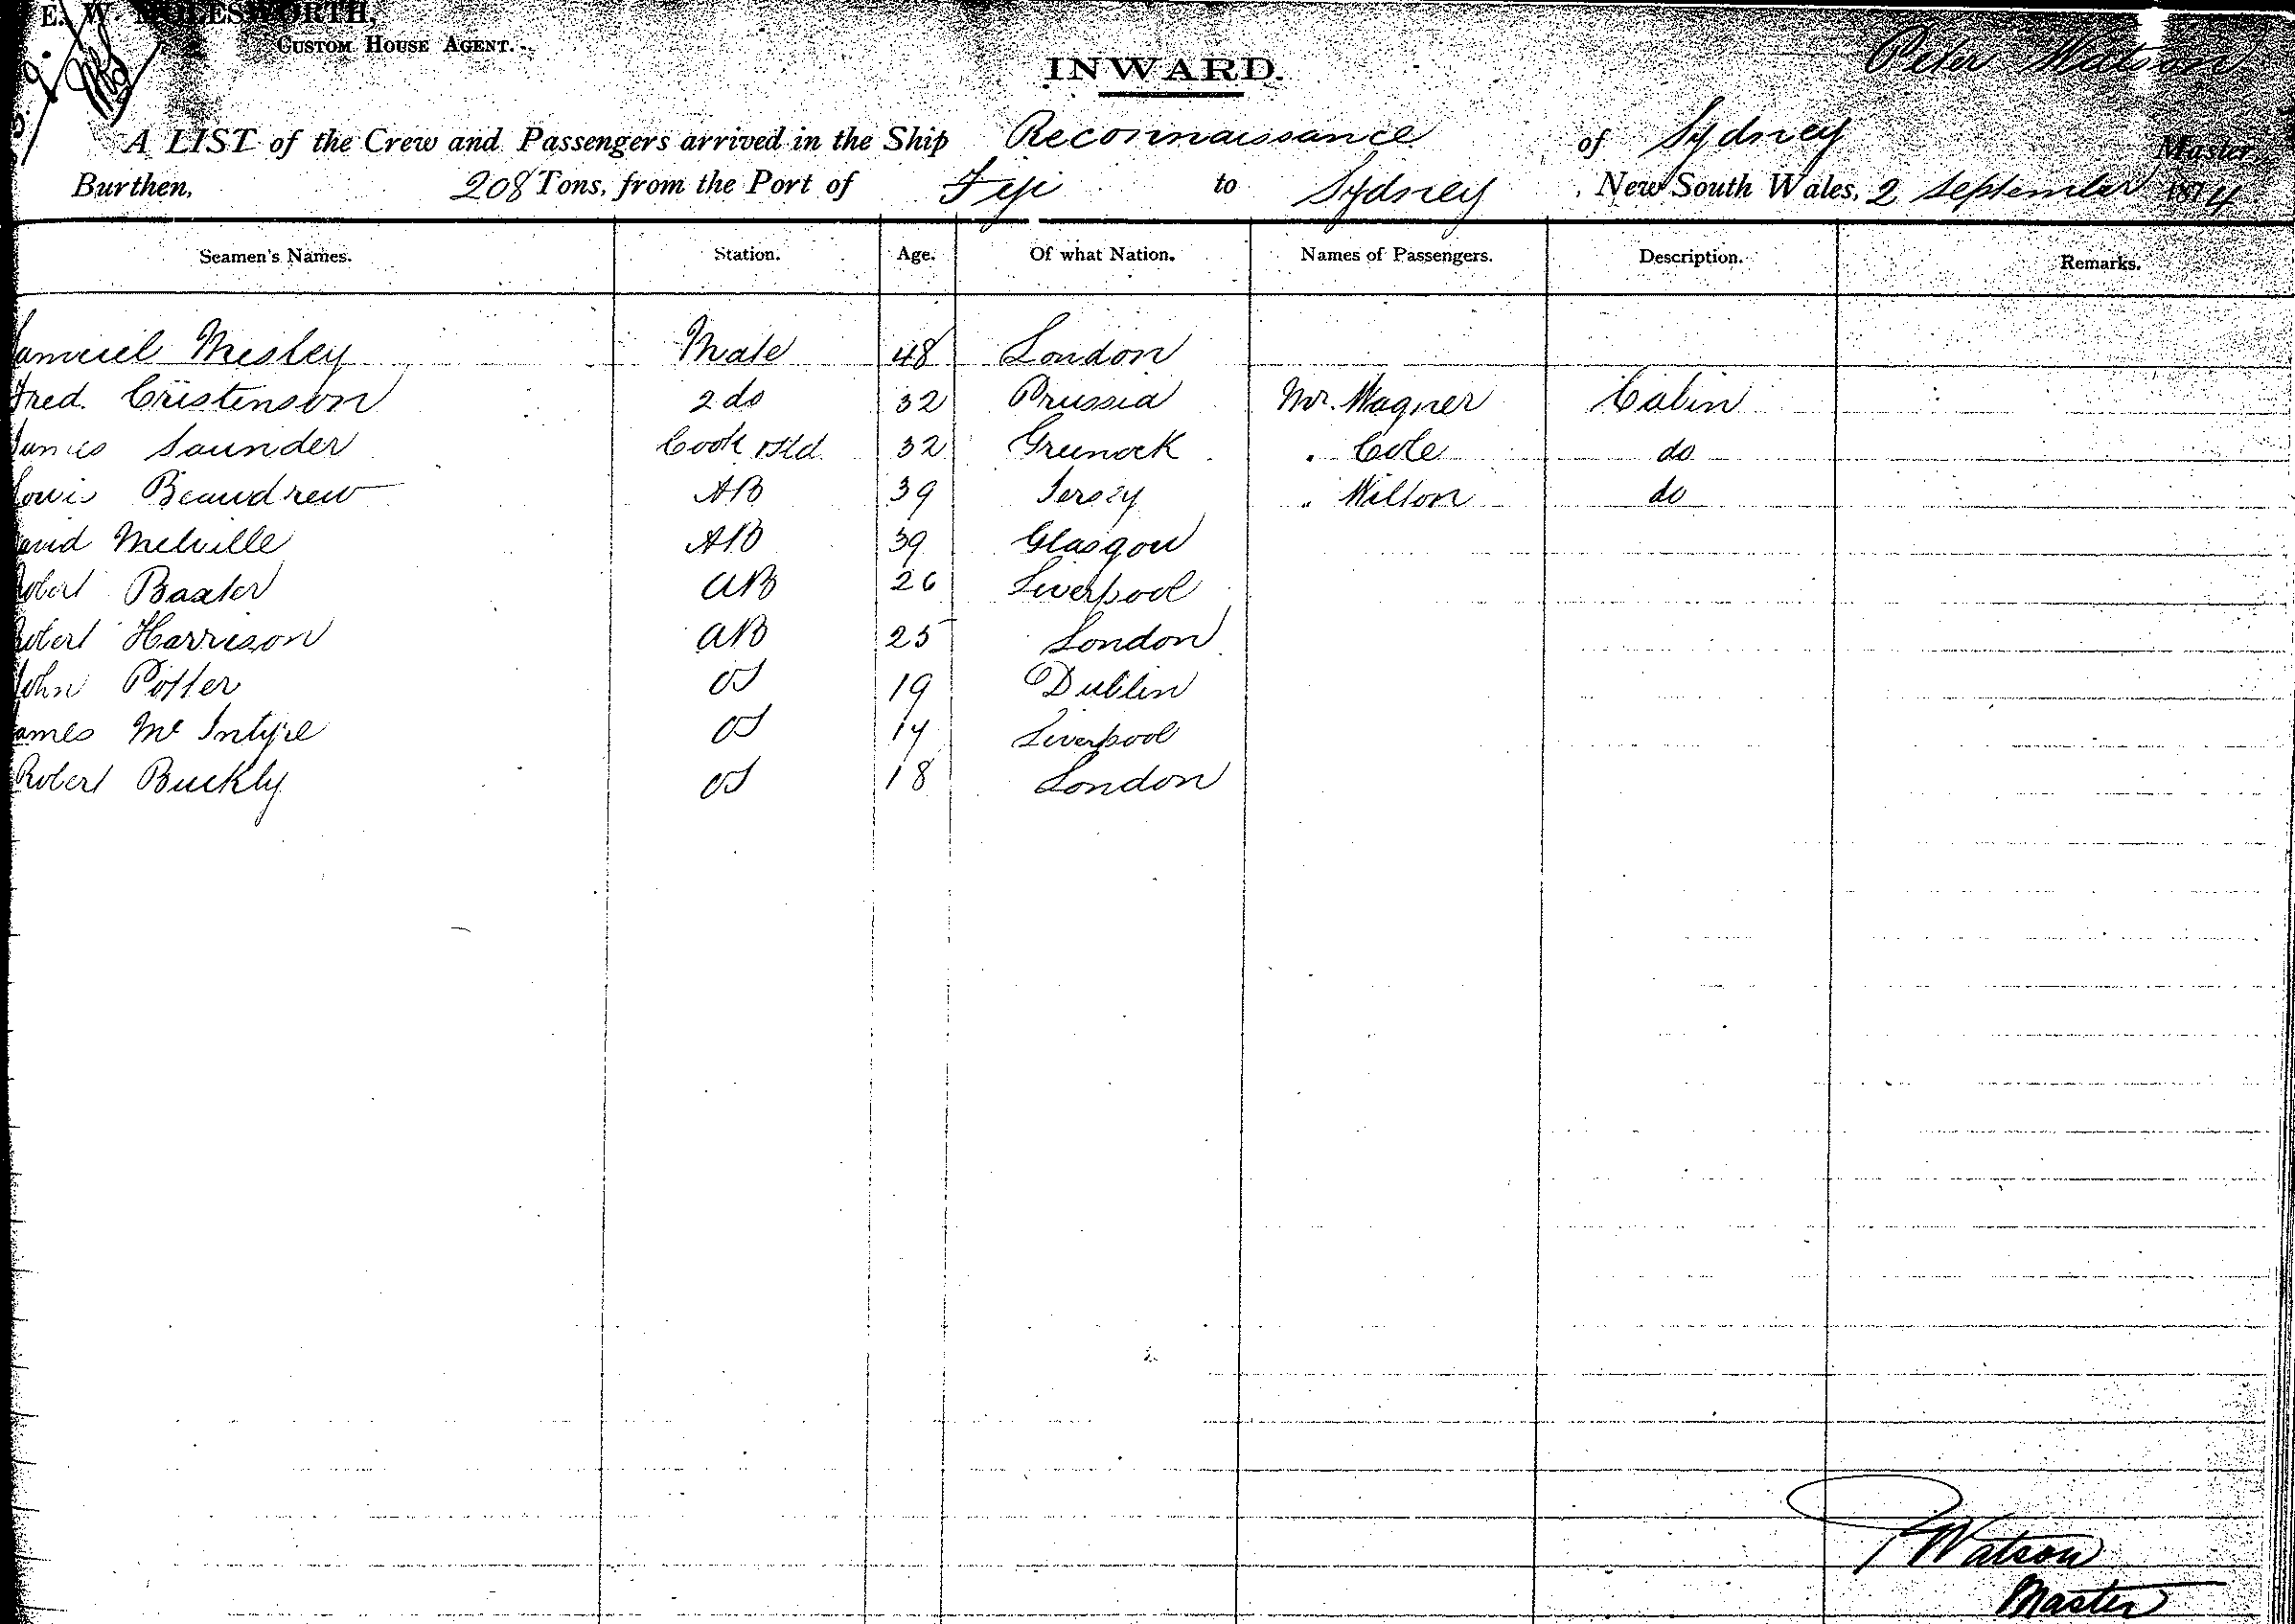 E. W. MOLESWORTH,
CUSTOM HOUSE AGENT.
INWARD.
Peter Watson
A LIST of the Crew and Passengers arrived in the Ship Reconnaissance of Sydney Master
Burthen, 208 Tons, from the Port of Fiji to Sydney, New South Wales, 2 September 1874
Seamen's Names. Station. Age. Of what Nation. Names of Passengers. Description. Remarks.
Samuel Mesley Mate 48 London
Fred. Cristenson 2 do 32 Prussia Mr. Wagner Cabin
James Saunder Cook 32 Greenock " Cole do
Louis Beaudrew AB 39 Jersey " Wilton do
David Melville AB 39 Glasgow
Robert Baxter AB 26 Liverpool
Robert Harrison AB 25 London
John Potter OS 19 Dublin
James McIntyre OS 17 Liverpool
Robert Buckly OS 18 London
P Watson
Master